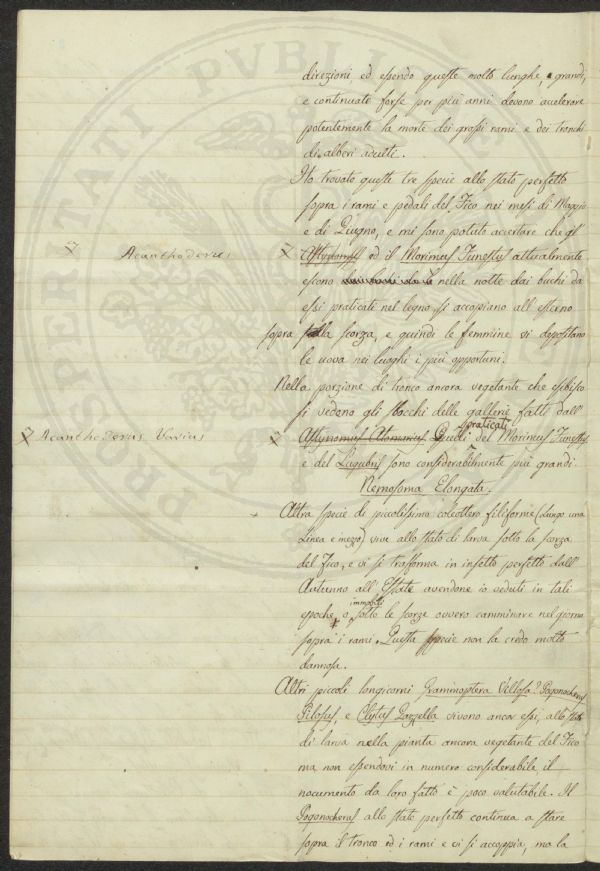 direzioni, ed essendo queste molto lunghe, e grandi,
e continuate forse per più anni devono accelerare
potentemente la morte dei grossi rami e dei tronchi
di alberi adulti.
Ho trovato queste tre specie allo stato perfetto
sopra i rami e pedali del Fico nei mesi di Maggio
e di Giugno, e mi sono potuto accertare che gl'
Acanthoderus Astynomus ed il Morimus Funestus attualmente
escono nella notte dai buchi da
essi praticati nel legno, si accopiano all'esterno
sopra la scorza, e quindi le femmine vi depositano
le uova nei luoghi i più opportuni.
Nella porzione di tronco ancora vegetante che esibisco
si vedono gli sbocchi delle gallerie fatte dall'
Acanthoderus Varius Astynomus Atomarius Quelli praticati del Morimus Funestus
e del Lugubris sono considerabilmente più grandi.
Nemosoma Elongata.
Altra specie di piccolissimo coleottero filiforme (Lungo una
Linea e mezzo) vive allo stato di larva sotto la scorza
del Fico, e vi si trasforma in insetto perfetto dall'
Autunno all'Estate avendone io veduti in tali
epoche o immobili sotto le scorze ovvero camminare nel giorno
sopra i rami. Questa specie non la credo molto
dannosa.
Altri piccoli longicorni Gramınoptera Vellosa? Pogonocherus
Pilosus, e Clytus Gazzella vivono ancor essi, allo stato
di larva nella pianta ancora vegetante del Fico
ma non essendovi in numero considerabile il
nocumento da loro fatto è poco valutabile. Il
Pogonocherus allo stato perfetto continua a stare
sopra il tronco ed i rami e vi si accoppia, ma la
PROSPERITATI PVBLICAE